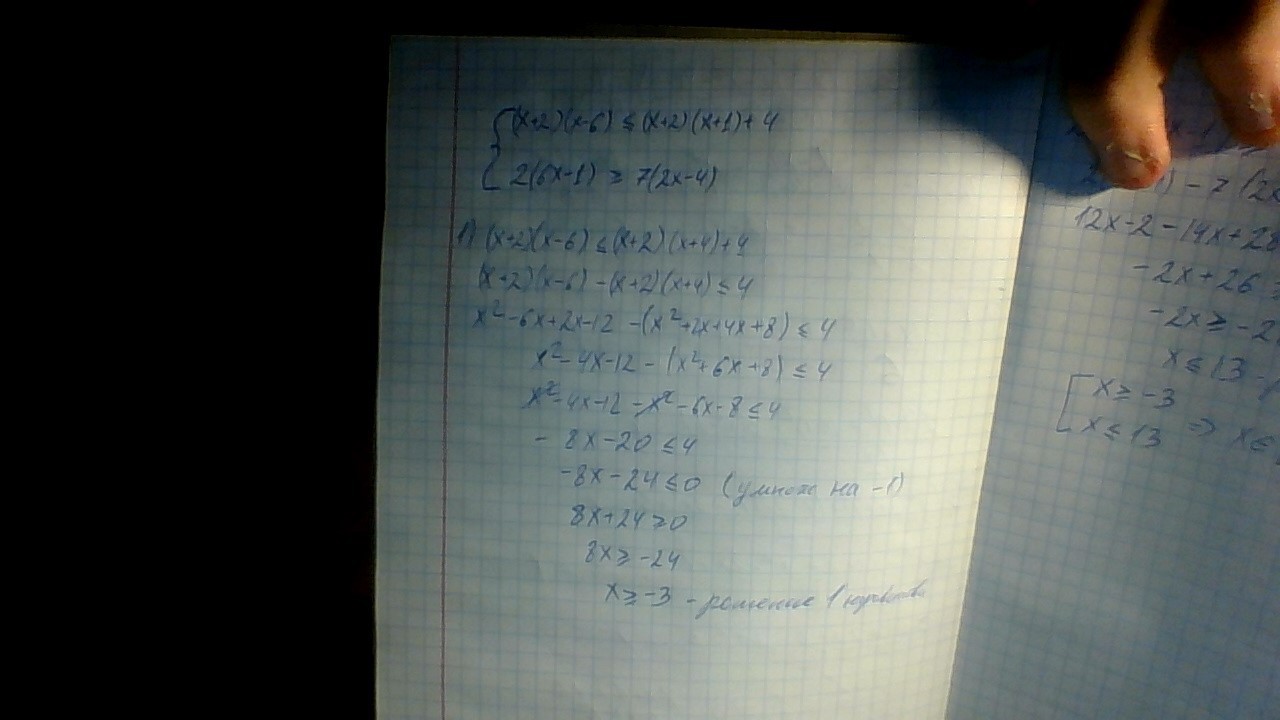 (x+2)(x-6) ≤ (x+2)(x+1)+4
2(6x-1) ≥ 7(2x-4)
1) (x+2)(x-6) ≤ (x+2)(x+4)+4
(x+2)(x-6) - (x+2)(x+4) ≤ 4
x²-6x+2x-12 -(x²+2x+4x+8) ≤ 4
x²-4x-12 - (x²+6x+8) ≤ 4
x²-4x-12 -x²-6x-8 ≤ 4
- 8x-20 ≤ 4
-8x-24 ≤ 0 (умнож на -1)
8x+24 ≥ 0
8x ≥ -24
x ≥ -3 - решение 1
- 7 (2x
12x-2-14x+28
-2x+26
-2x ≥ -2
x ≤ 13
x ≥ -3
x ≤ 13 => x ∈